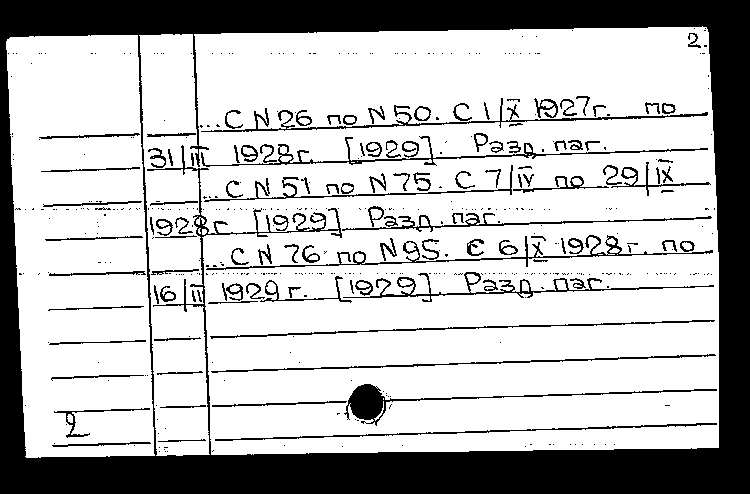 2.
...С N 26 по N 50. С 1/X 1927г. по
31/III 1928г. [1929]. Разд. паг.
...С N 51 по N 75. С 7/IV по 29/IX
1928г. [1929]. Разд. паг.
...С N 76 по N 95. С 6/X 1928г. по
16/II 1929г. [1929]. Разд. паг.
2